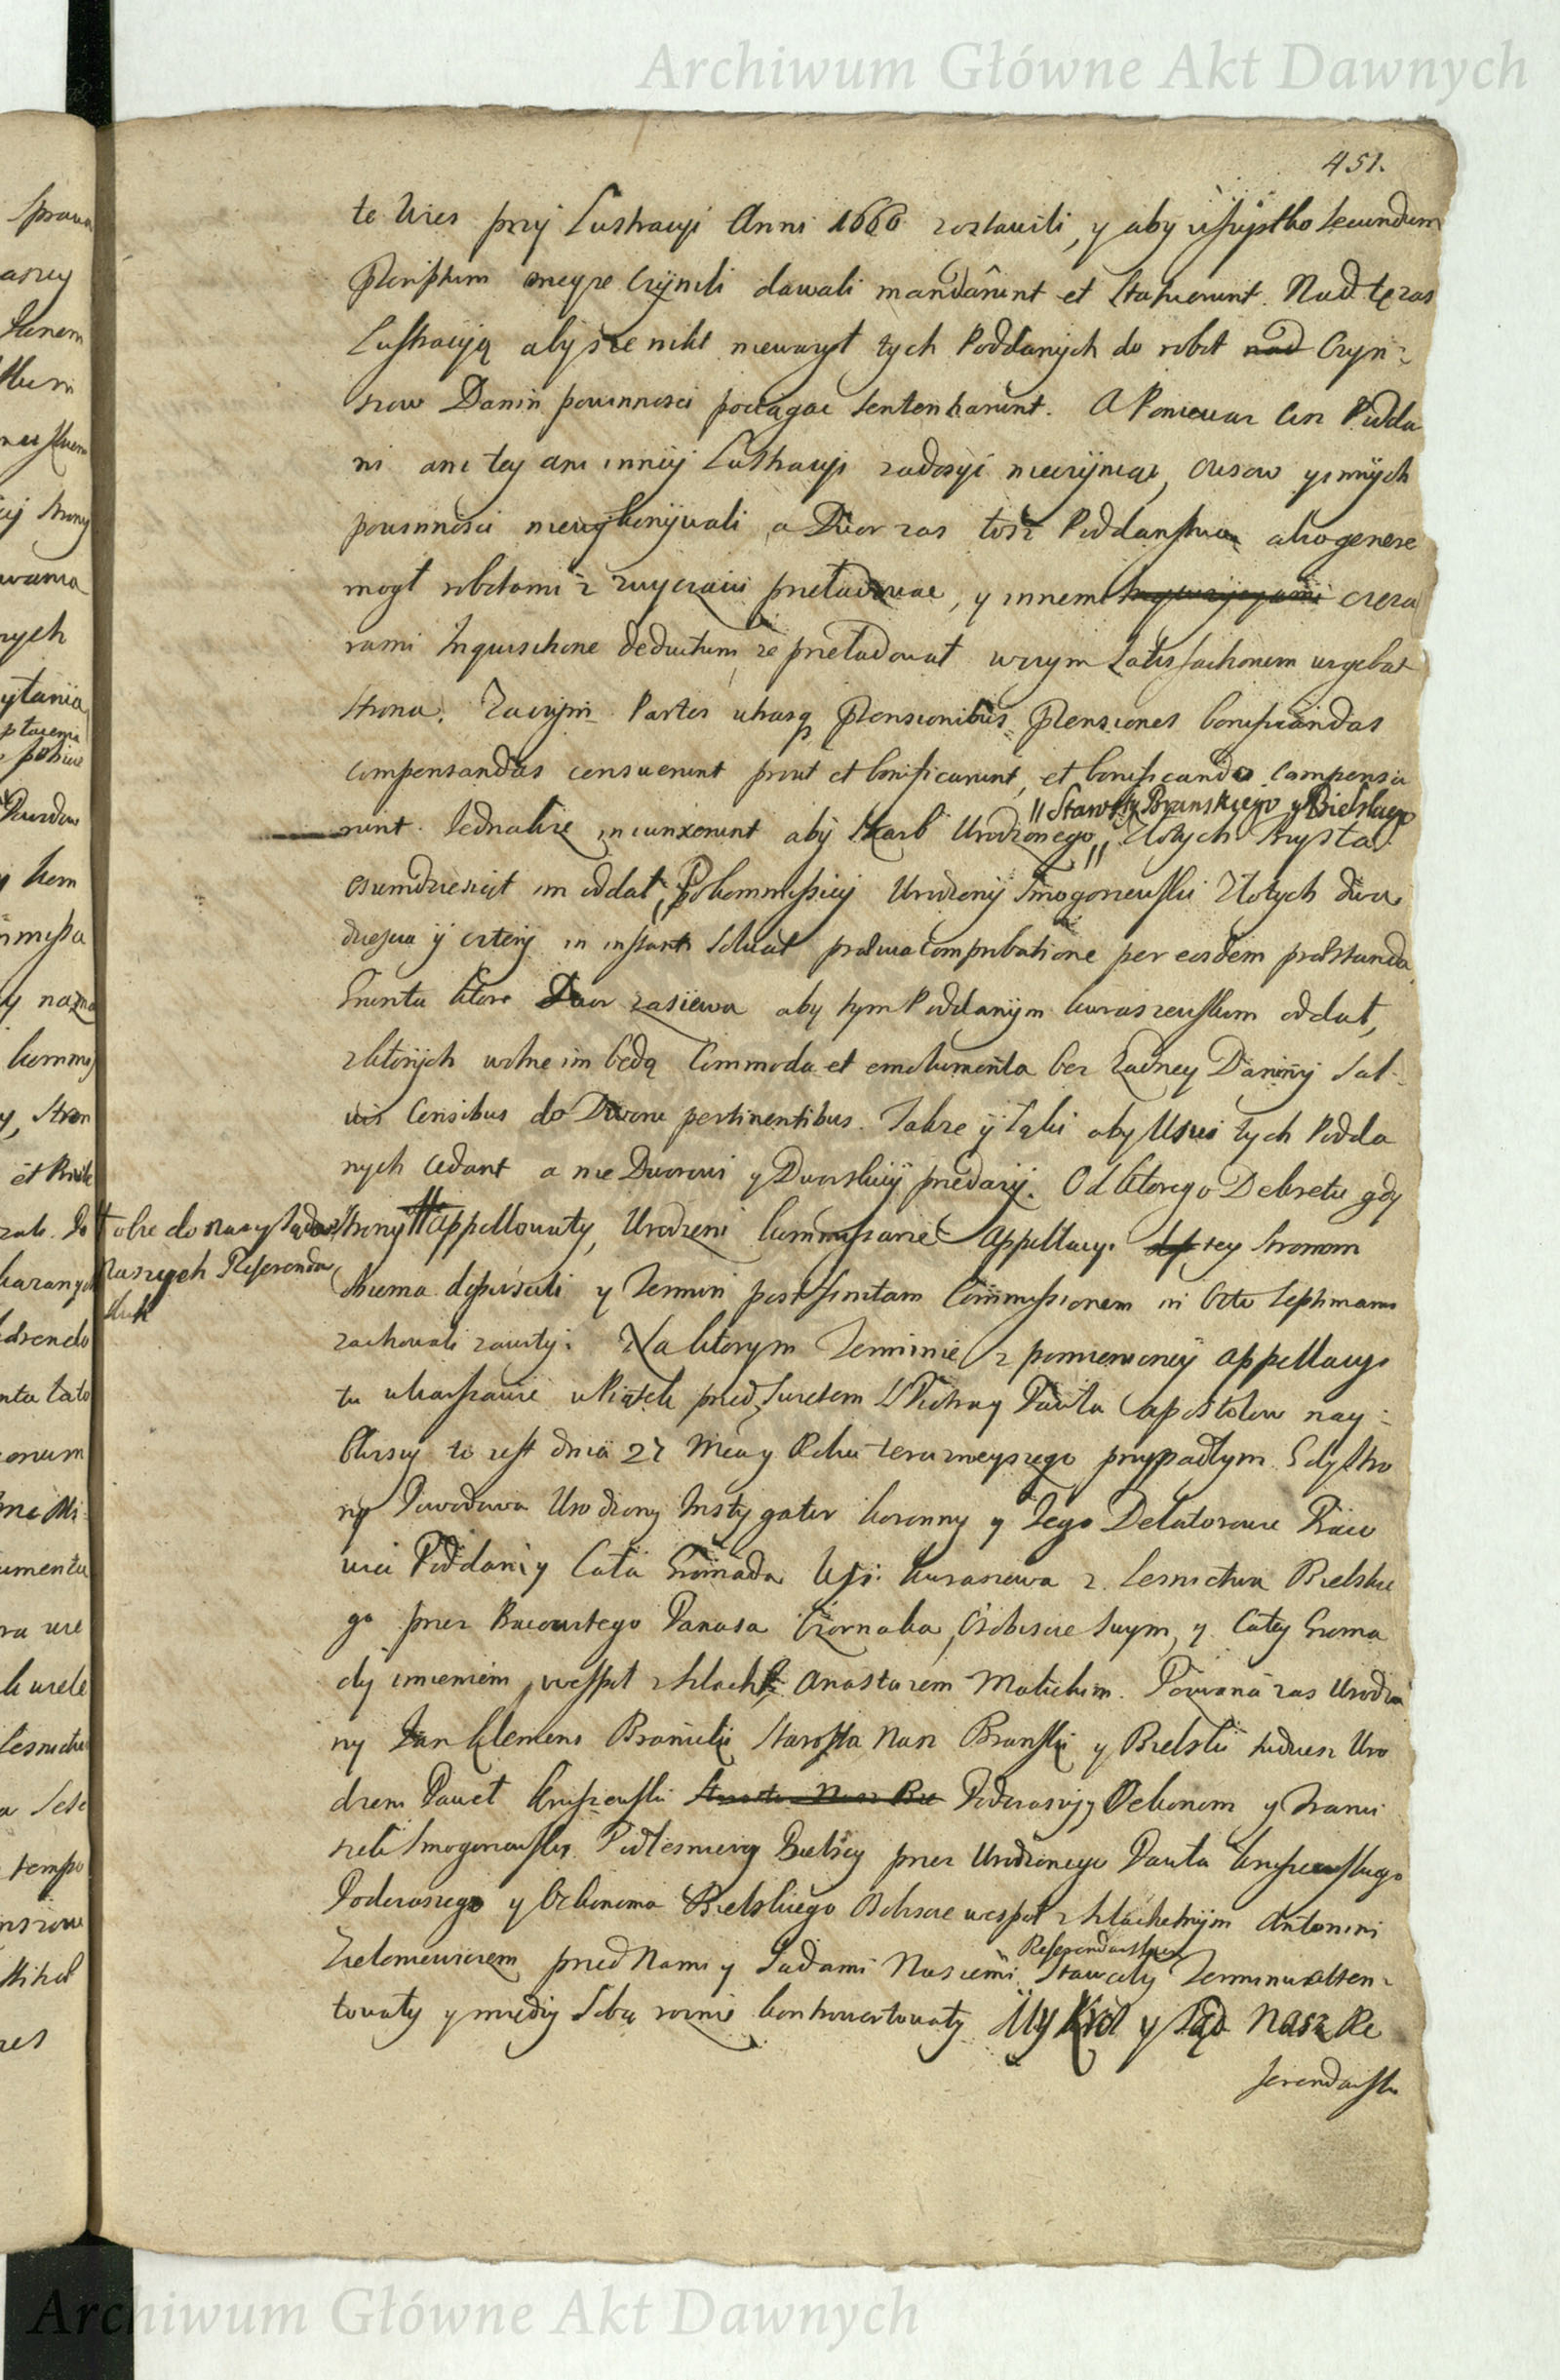 Archiwum Główne Akt Dawnych
451.
te Wies przy Lustracyi Anni 1660 zostawili, y aby wszystko secundum
czynili dawali mandarunt et statuerunt. Nad tę zas
Lustracyją aby się nikt niewazył tych Poddanych do robot nad Czyn-
szow Danin powinnosci pociągac sententiarunt. A Poniewaz ciz Podda
ni ani tey ani inniey Lustracyi zadosyc nieczyniąc, czisow y innych
powinnosci niewykonywali, a Dwor zas tosz Poddanstwo alio genere
mogł robotami z zwyczaiu przeładowac, y innemi cieza
rami Inquisitione deductum ze przeładował w czym Satisfactionem urgebat
strona. Zaczym Partes utrasq Praetensionibus Praetensiones bonificandas
compensandas censuerunt prout et bonificarunt, et bonificando compensa
runt. Jednakze iniunxerunt aby Skarb Urodzonego,, Złotych trzysta
|| Starosty Branskiego y Bielskiego
osiemdziesiąt im oddał, Po kommissiey Urodzony Smogorzewski Złotych dwa
dziescia y cztery in instanti solvat praevia comprobatione per eosdem praestanda
Grunta ktore Dwor zasiewa aby tym Poddanym kuraszewskim oddał,
z ktorych wolne im będą Commoda et emolumenta bez Zadney Daniny Sal-
vis Censibus do Dworu pertinentibus. Takze y Łąki aby Usui tych Podda
nych cedant a nie Dworowi y Dworskiey przedazy. Od ktorego Dekretu gdy
strony appellowały, Urodzeni kommissarze Appellacyi tey stronom
obie do naszych Sądow
naszych Referenda
rskich
obiema dopuscili y Termin post finitam Commissionem in octo septimanis
zachowali zawity. Na ktorym Terminie z pomienioney appellacyi
tu w Warszawie w Piątek przed Swietem SS Piotra y Pawła Apostołow nay-
bliszy to iest dnia 27 Mca y Roku teraznieyszego przypadłym Gdy stro
ny Powodowa Urodzony Instygator koronny y Jego Delatorowie Praco
wici Poddani y Cała Gromada Wsi kuraszewa z Lesnictwa Bielskie
go przez Pracowitego Panasa Czornaka, Osobiscie swym, y całey Groma
dy imieniem, wespoł z szlach Anastazem Malickim. Pozwana zas Urodzo
ny Jan Klemens Branicki Starosta Nasz Branski y Bielski tudziesz Uro
dzeni Paweł kruszewski Starosta Nasz Bie Podczaszy y Oekonom y Franci
szek Smogorzewski Podlesniczy Bielscy przez Urodzonego Pawła kruszewskiego
Podczaszego y Oekonoma Bielskiego Osobiscie wespoł z szlachetnym Antonim
Referendarskim
Zielomiewiczem przed Nami y Sądami Naszemi Stawały Terminu atten-
towały y miedzy Sobą roznie kontrowertowały My Krol y Sąd Nasz Re
ferendarski
Archiwum Główne Akt Dawnych